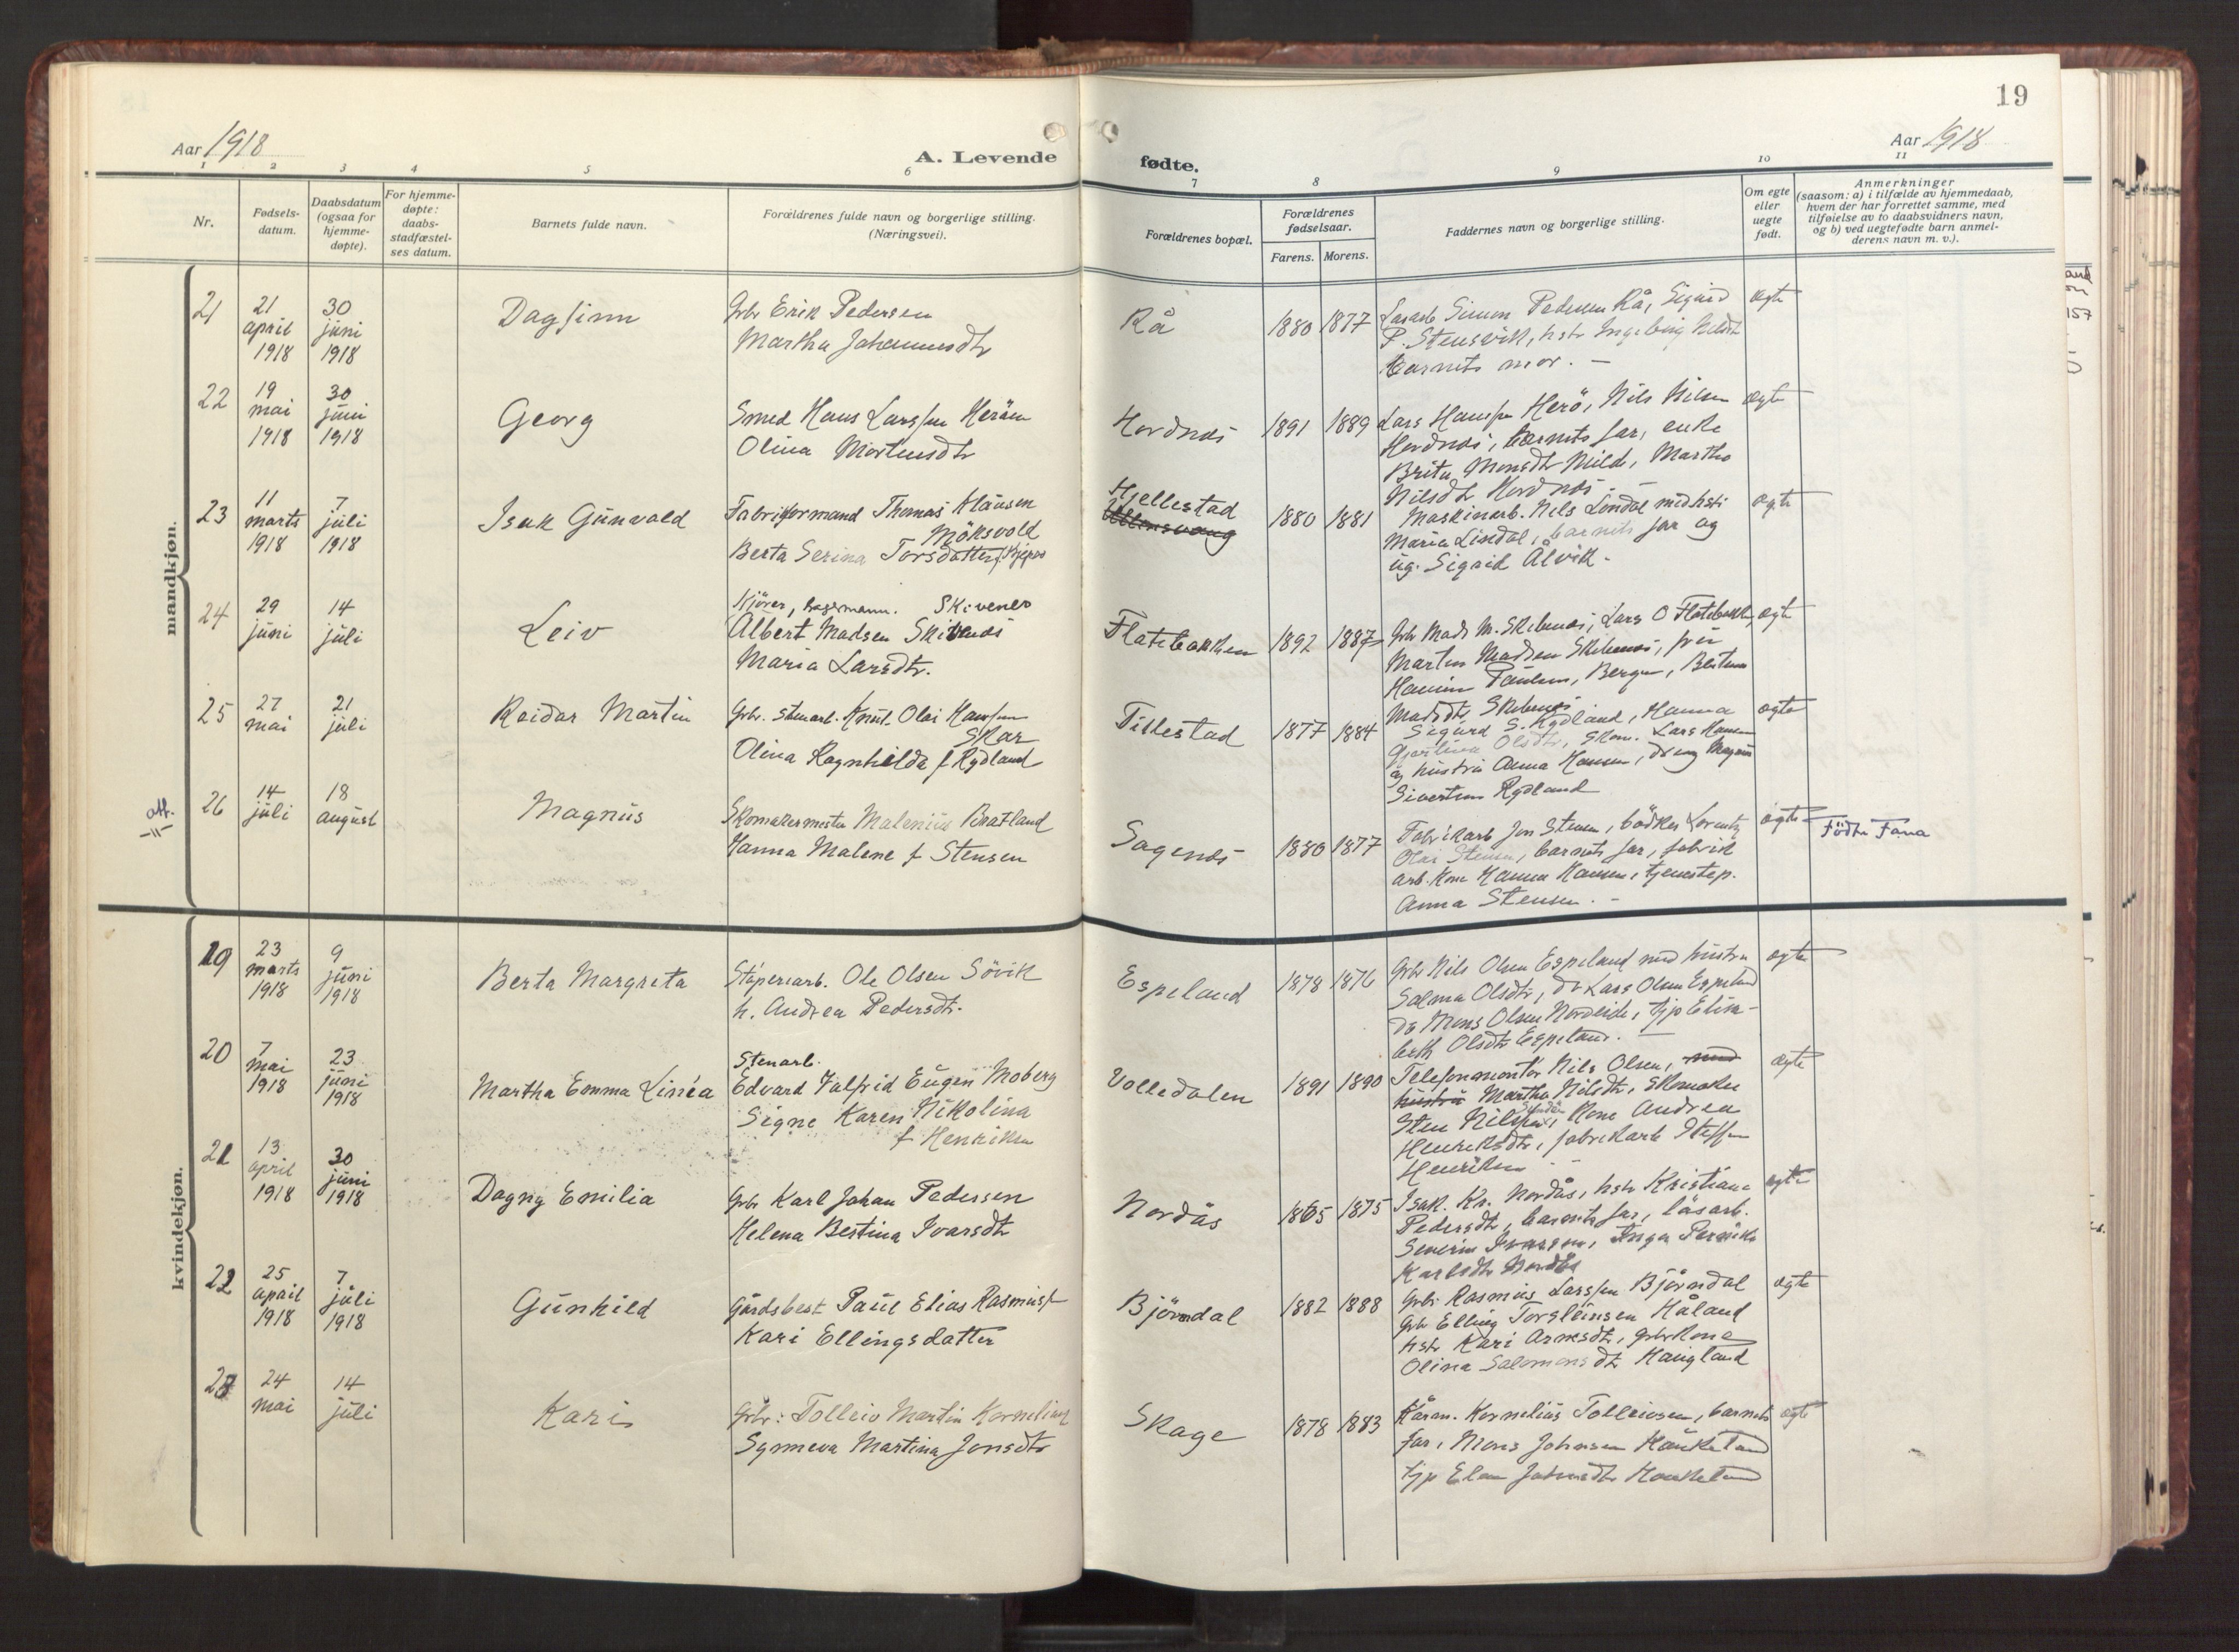 19
Aar 1918
A. Levende
fødte.
Aar 1918
1 2 3 4 5 6 7 8 9 10 11
Nr.
Fødsels-
datum.
Daabsdatum
(ogsaa for
hjemme-
døpte).
For hjemme-
døpte:
daabs-
stadfæstel-
ses datum.
Barnets fulde navn.
Forældrenes fulde navn og borgerlige stilling.
(Næringsvei).
Forældrenes bopæl.
Forældrenes
fødselsaar.
Farens. Morens.
Faddernes navn og borgerlige stilling.
Om egte
eller
uegte
født.
Anmerkninger
(saasom: a) i tilfælde av hjemmedaab,
hvem der har forrettet samme, med
tilføielse av to daabsvidners navn,
og b) ved uegtefødte barn anmel-
derens navn m. v.).
mandkjøn.
21
21
april
1918
30
juni
1918
Dagfinn
Gbr Erik Pedersen
Martha Johannesdtr
Rå
1880 1877
Simon Pedersen Rå, Sigurd
P. Stensvik, hstr Ingeborg
barnets mor. —
egte
22
19
mai
1918
30
juni
1918
Georg
Smed Hans Larssen Herøen
Olina Mortensdtr
Hordnæs
1891 1889
Lars Hanssen Herö, Nils Nilsen
Hordnæs, barnets far, enke
Brita Monsdtr Milde, Martha
Nilsdtr Hordnæs. —
egte
23
11
marts
1918
7
juli
1918
Isak Gunvald
Fabrikformand Thomas Klausen
Möksvold
Berta Serina Torsdatter
Hjellestad
Ullensvang
1880 1881
Maskinarb. Nels Lindal med hst
Maria Lindal, barnets far og
ug. Sigrid Ålvik.
egte
24
29
juni
14
juli
Leiv
Kjører, lagermann. Skivenes
Albert Madsen Skivenæs
Maria Larsdtr.
Flatebakken
1892 1887
Gbr Mads M. Skibenæs, Lars O Flatebakken,
Martin Madsen Skibenæs, fru
Paulsen, Bergen,
Madsdtr Skibenæs
egte
25
27
mai
21
juli
Reidar Martin
Gbr. stenarb. Knut Olai Hanssen
Skar
Olina Ragnhilda f Rydland
Titlestad
1877 1884
Sigurd S. Rydland, Hanna
Olsdtr, Skom. Lars Hansen
og hustru Anna Hansen, dreng Magnus
Sivertsen Rydland
egte
26
14
juli
18
august
Magnus
Skomakermester Malenius Bratland
Hanna Malene f Stensen
Sagenæs
1880 1877
Fabrikarb Jon Stensen, bödker Lorentz
Olai Stensen, barnets far, fabrik
arb. kone Hanna Hansen, tjenestep.
Anna Stensen. —
egte
Födtr Fana
att.
kvindekjøn.
19
23
marts
1918
9
juni
1918
Berta Margreta
Stöperiarb. Ole Olsen Sövik
h. Andrea Pedersdtr.
Espeland
1878 1876
Gbr Nils Olsen Espeland med hustru
Salma Olsdtr, do Lars Olsen Espeland
do Mons Olsen Nordeide, tjp Elisa-
beth Olsdtr Espeland. —
egte
20
7
mai
1918
23
juni
1918
Martha Emma Linéa
Stenarb.
Edvard Valfrid Eugen Moberg
Signe Karen Nikolina
f Henriksen
Volledalen
1891 1890
Telefonmontør Nils Olsen, med
hustru Martha Nilsdtr, Skomaker
Sten Nilssen, kone Andrea
Henriksdtr, fabrikarb Steffen
Henriksen
egte
21
13
april
1918
30
juni
1918
Dagny Emilia
Gbr Karl Johan Pedersen
Helena Bertina Ivarsdtr
Nordås
1865 1875
Isak Kr. Nordås, hstr Kristiane
Pedersdtr, barnets far, läsarb.
Severin Ivarsen, Inga
Karlsdtr Nordås
egte
22
25
april
1918
7
juli
1918
Gunhild
Gårdsbest Paul Elias Rasmuss
Kari Ellingsdatter
Björndal
1882 1888
Gbr Rasmus Larssen Björndal
Gbr Elling Torsteinsen Håland
hstr Kari Arnesdtr, gbrkone
Olina Salomonsdtr Haugland
egte
23
24
mai
14
juli
Kari
Gbr: Tolleiv Martin Korneliuss
Synneva Martina Jonsdtr
Skage
1878 1883
Kåran. Kornelius Tolleivsen, barnets
far, Mons Johnsen Haukeland
tjp Elen Johnsdtr Haukeland
egte